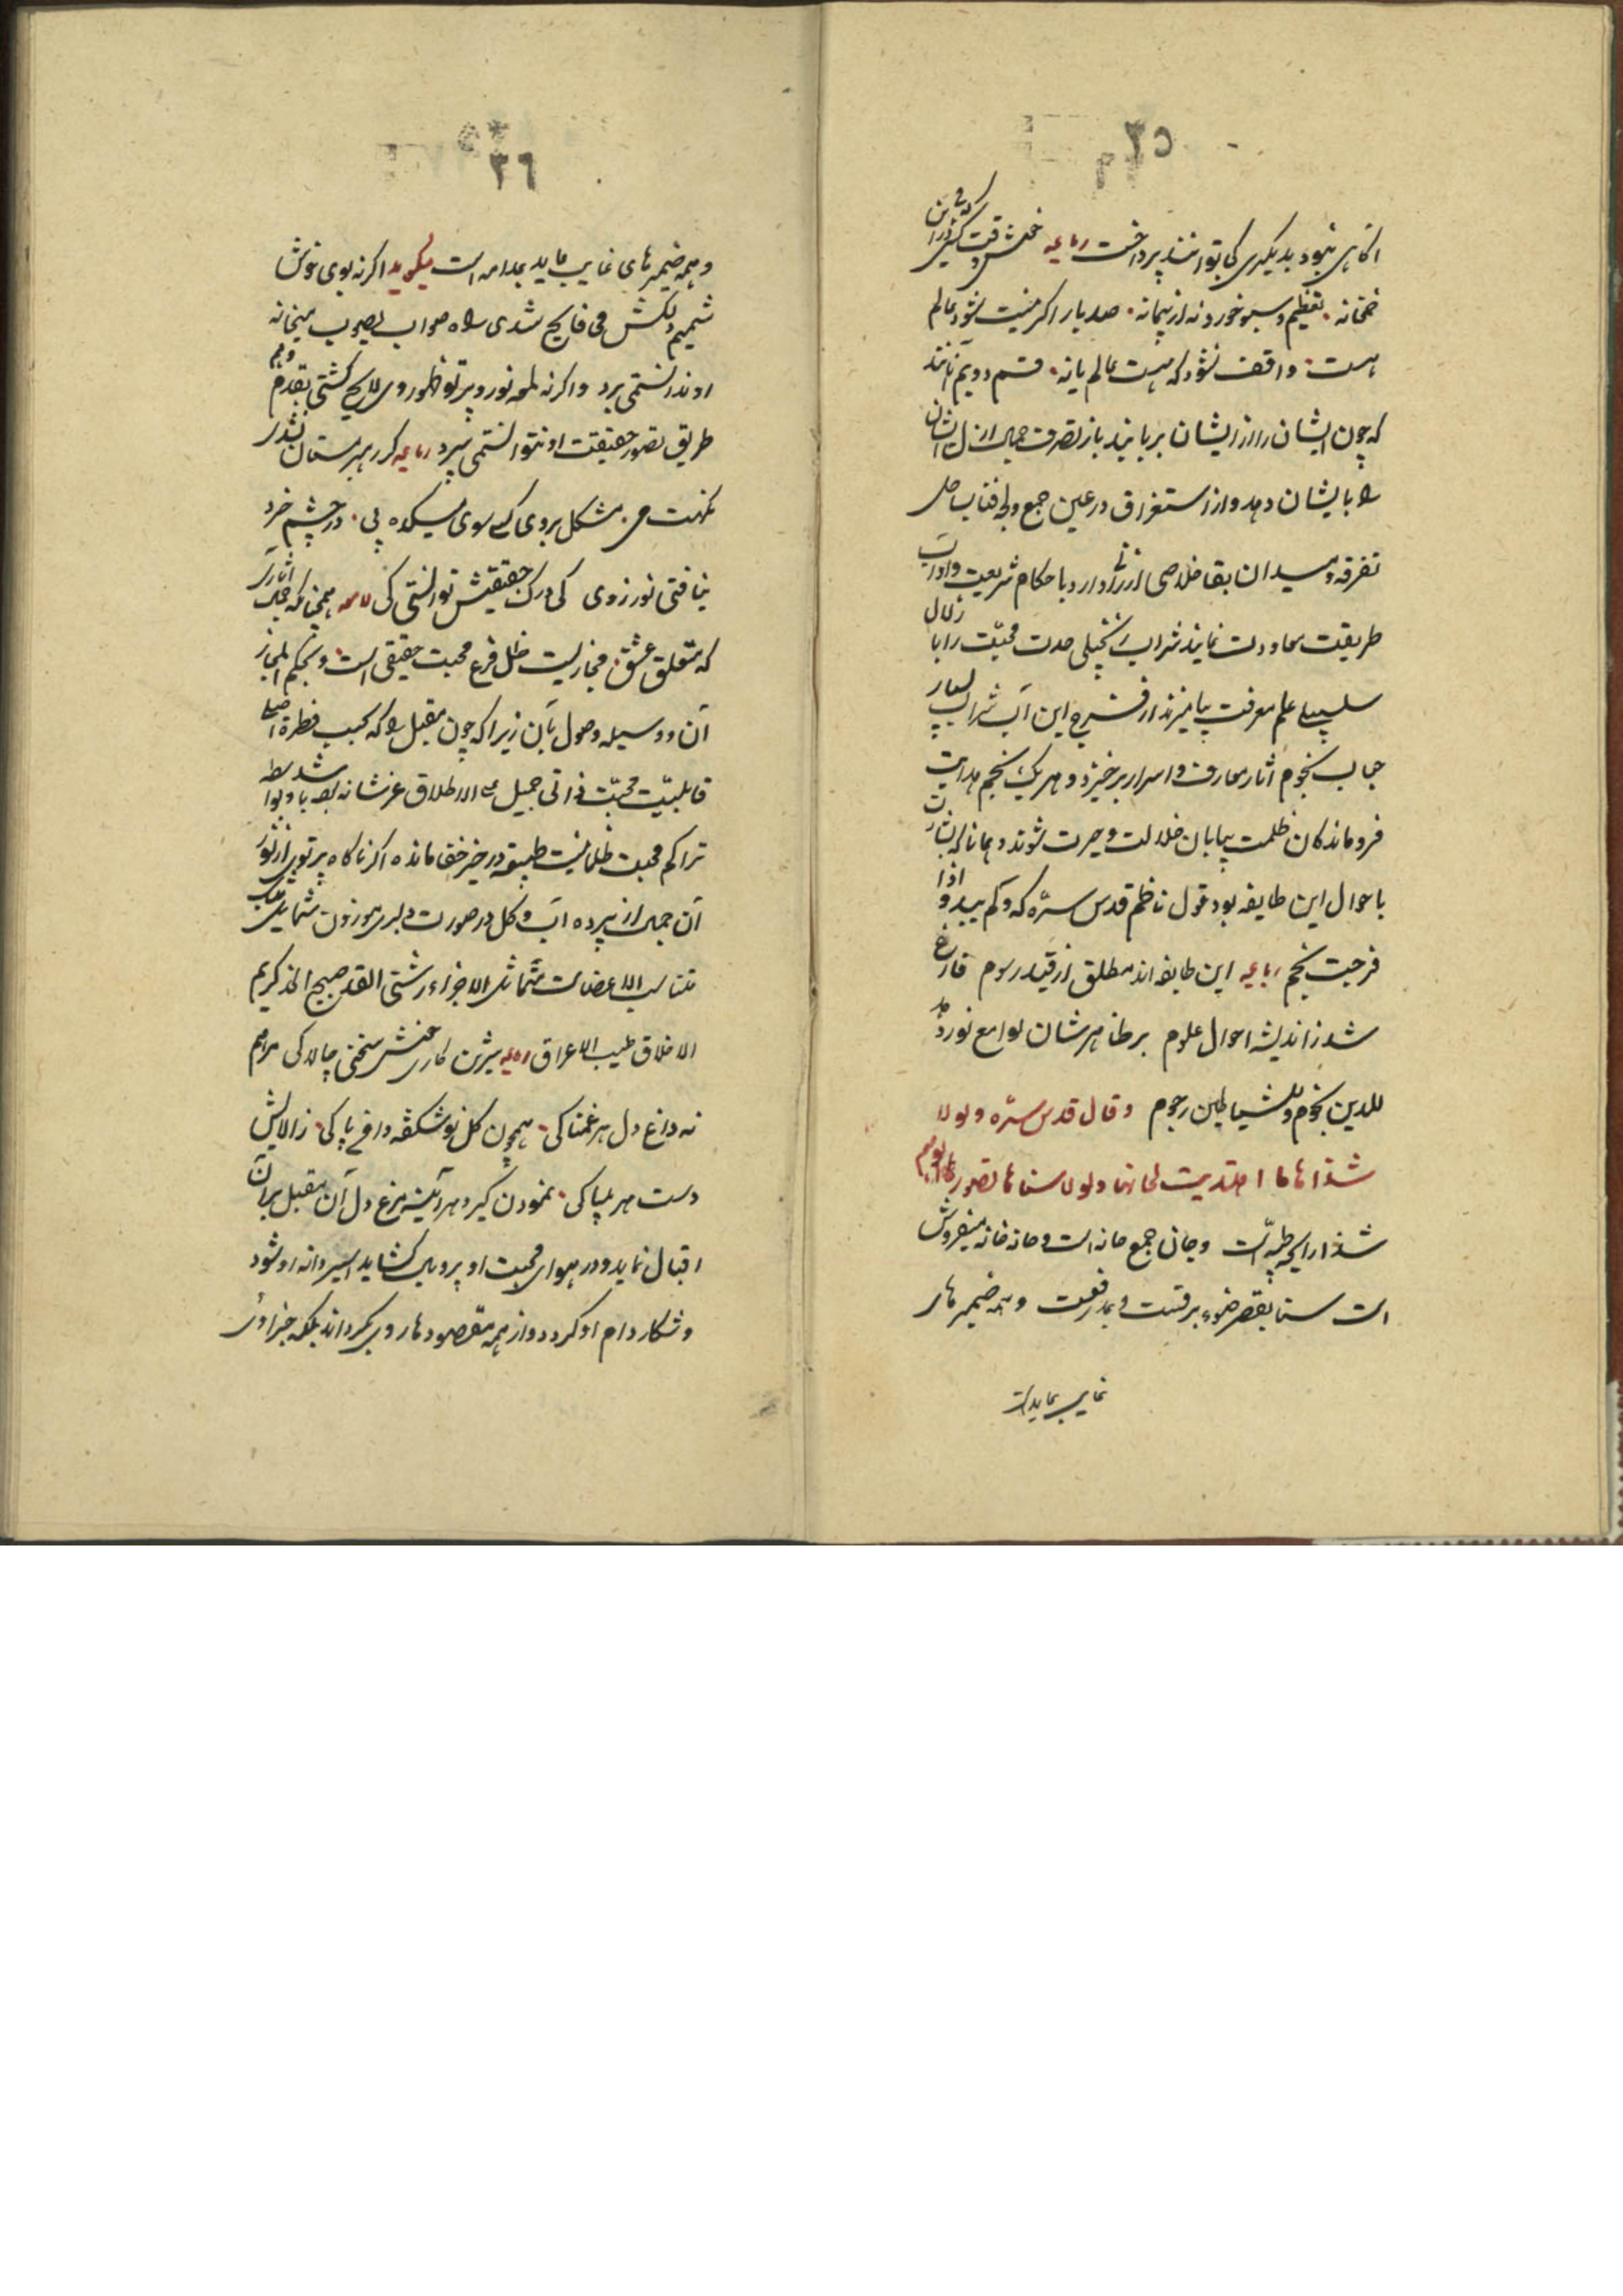 ٢٥
اكاهى نبود بديگرى كى توانند پرداخت رباعيه خوش وقت كسى كه مى درين
خمخانه نه بقطيم و سبو خورد نه از پيمانه صد بار اكر نيست شود عالم
هست واقف نشود كه هست عالم يا نه قسم دويم آنانند
كه چون ايشان را از ايشان بربايند باز تصرف جمال ازل ايشان
را با ايشان دهد و از استغراق در عين جمع و لجه فنا بساحل
تفرقه و ميدان بقا خلاصى ارزانى دارد با حكام شريعت و آداب
طريقت معاودت نمايند شراب زنجبيلى صدت محبت را با زلال
سلسبيل علم معرفت بياميزند از مزج اين آب شراب بسيار
حباب نجوم اثار معارف و اسرار برخيزد و هر يك نجم هدايت
فروماندكان ظلمت بيابان ضلالت و حيرت شوند و همانا كه اشارت
با حوال اين طايفه بود قول ناظم قدس سره كه و كم يبدو اذا
مزجت نجم رباعيه اين طايفه اند مطلق از قيد رسوم فارغ
شده ز انديشه احوال علوم بر ظاهرشان لوامع نور هد
للدين نجوم و للشياطين رجوم وقال قدس سره ولولا
شذاها ما اهتديت لحانها ولولا سناها ما تصورها الوهم
شذا رايحه طيبه است و حان جمع حانه است و حانه خانه ميفروش
است سنا بقصر ضوء برقست و بمد رفعت و همه ضميرهاى
غايب عايد است
٢٦
و همه ضميرهاى غايب عايد بمدامه است ميگويد اكر نه بوى خوش
شميم دلكش مى فايح شدى راه صواب بصوب ميخانه
او ندانستمى برد و اكر نه لمعه نور و پرتو ظهور وى لايح كشتى بقدم وهم
طريق تصور حقيقت او نتوانستمى سپرد رباعيه كر رهبر مستان نشدى
نكهت مى مشكل بردى كسى سوى ميكده پى در چشم خرد
نيافتى نور ز وى كى درك حقيقتش توانستى كى لامعه همچنانكه جمال آثارى
كه متعلق عشق مجازيست ظل و فرع محبت حقيقى است و بحكم المجاز
آن و وسيله وصول بآن زيرا كه چون مقبلى را كه بحسب فطرت اصلى
قابليت محبت ذاتى جميل على الاطلاق عز شانه بوده باشد و بواسطه
تراكم حجب ظلمانيت طبيعه در حيز خفا مانده اكر ناكاه پرتوى از نور
آن جمال از پرده آب و كل در صورت دلبرى موزون شمايل
متناسب الاعضا متماثل الاجزاء رشيق القد صبيح الخد كريم
الاخلاق طيب الاعراق رباعيه شيرين كارى خوش سخنى چالاكى مرهم
نه داغ دل هر غمناكى همچون كل نو شكفته دامن پاكى ز آلايش
دست هر بيباكى نمودن كيرد هر آينه مرغ دل آن مقبل بر آن
اقبال نمايد و در هواى محبت او پر و بال كشايد اسير دانه او شود
و شكار دام او كردد و از همه مقصودها روى بكرداند بلكه جز او